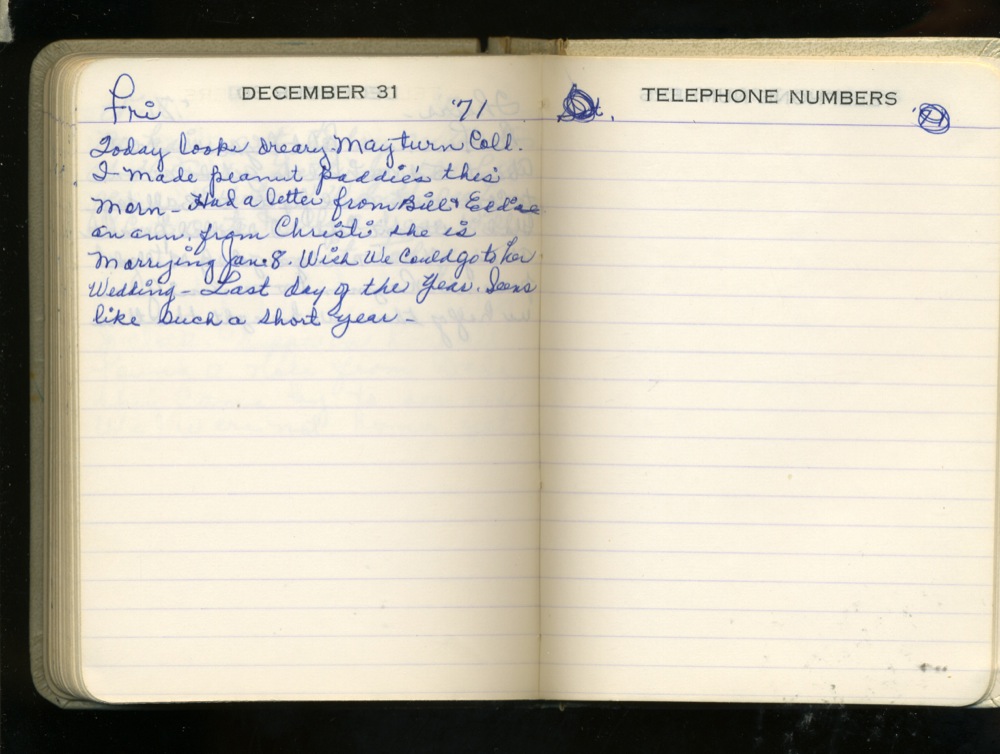 DECEMBER 31
Fri '71
Today looks dreary. May turn Cold.
I made peanut paddies this
morn - Had a letter from Bill &
an ann. from Christi she is
Marrying Jan. 8. Wish We Could go to her
Wedding - Last day of the Year. Seems
like such a short year -
TELEPHONE NUMBERS